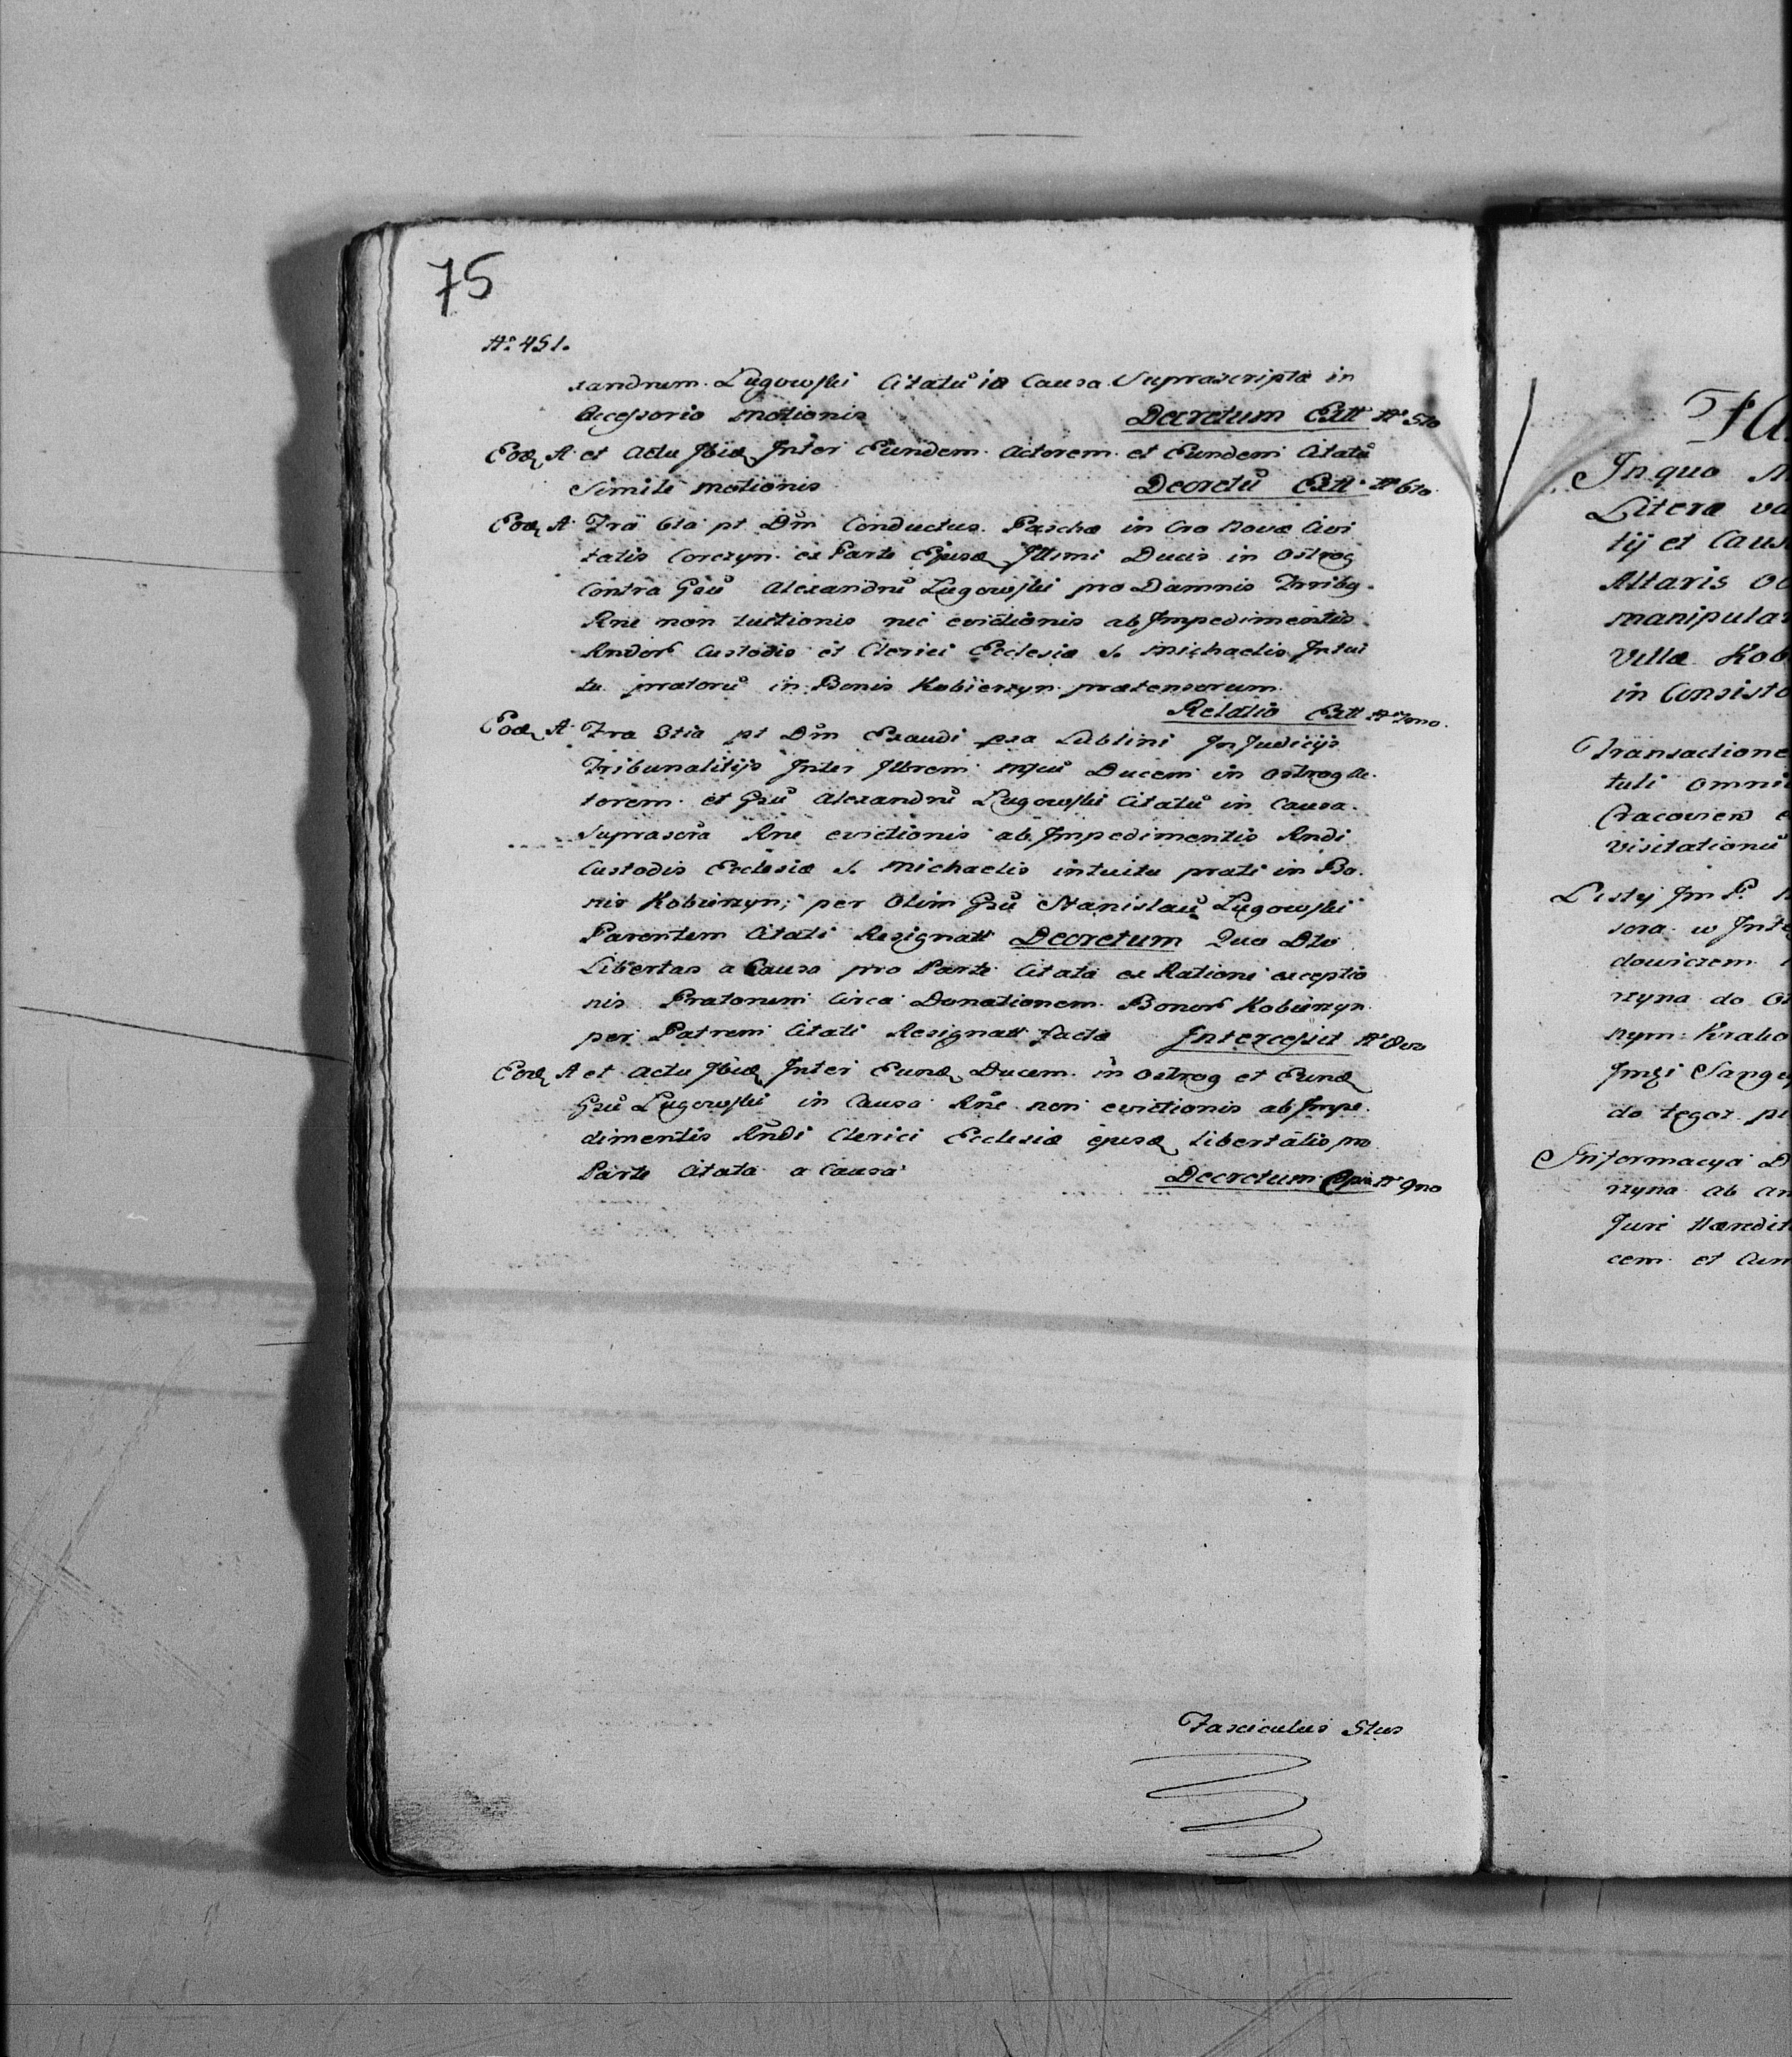 75
No 451.
xandrum Lugowski Citatū in Causa Suprascripta in
Accessorio motionis Decretum Extt No 5to
Eod A et Actu Ibid Inter Eundem Actorem et Eundem Citatū
Simile motionis Decretū Extt No 6to
Eod A Fra 6ta pt Dm Conductus Paschæ in Cro Novæ Civi
tatis Corczyn ex Parte Ejusd Illmi Ducis in Ostrog
Contra Gsū Alexandrū Lugowski pro Damnis Trribg
Rne non tuitionis nec evictionis ab Impedimentis
Rndor Custodis et Clerici Ecclesiæ S. Michaelis Intui
tu pratorū in Bonis Kobierzyn prætensorum
Relatio Extt No 7mo
Eod A Fra 3tia pt Dm Exaudi pxa Lublini In Judicijs
Tribunalitijs Inter Illrem Ducem in Ostrog Ac
torem et Gsū Alexandrū Lugowski Citatū in Causa
Suprascra Rne evictionis ab Impedimentis Rndi
Custodis Ecclesiæ S. Michaelis intuitu prati in Bo
nis Kobierzyn; per Olim Gsū Stanislaū Lugowski
Parentem Citati Resignatt Decretum Quo Dto
Libertas a Causa pro Parte Citata ex Ratione exceptio
nis Pratorum Circa Donationem Bonor Kobierzyn
per Patrem Citati Resignatt facta Intercessit No 8vo
Eod A et Actu Ibid Inter Eund Ducem in Ostrog et Eund
Gsū Lugowski in Causa Rne non evictionis ab Impe
dimentis Rndi Clerici Ecclesiæ ejusd libertatis pro
Parte Citata a Causa Decretum Copia No 9no
Fasciculus 5tus
In quo
Literæ
tij et Caus
Altaris
manipular
Villa Kob
in Consisto
Transactione
tuli omni
Cracovien
visitationū
Listy Im P.
sora w Inte
dowiczem
rzyna do
nym Krako
Imsi Sangu
do tegoz
Informacya D
rzyna ab an
Jure Hæredit
cem et Cum